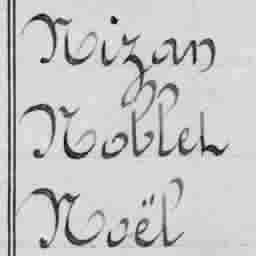 Nizan
Noblet
Noël